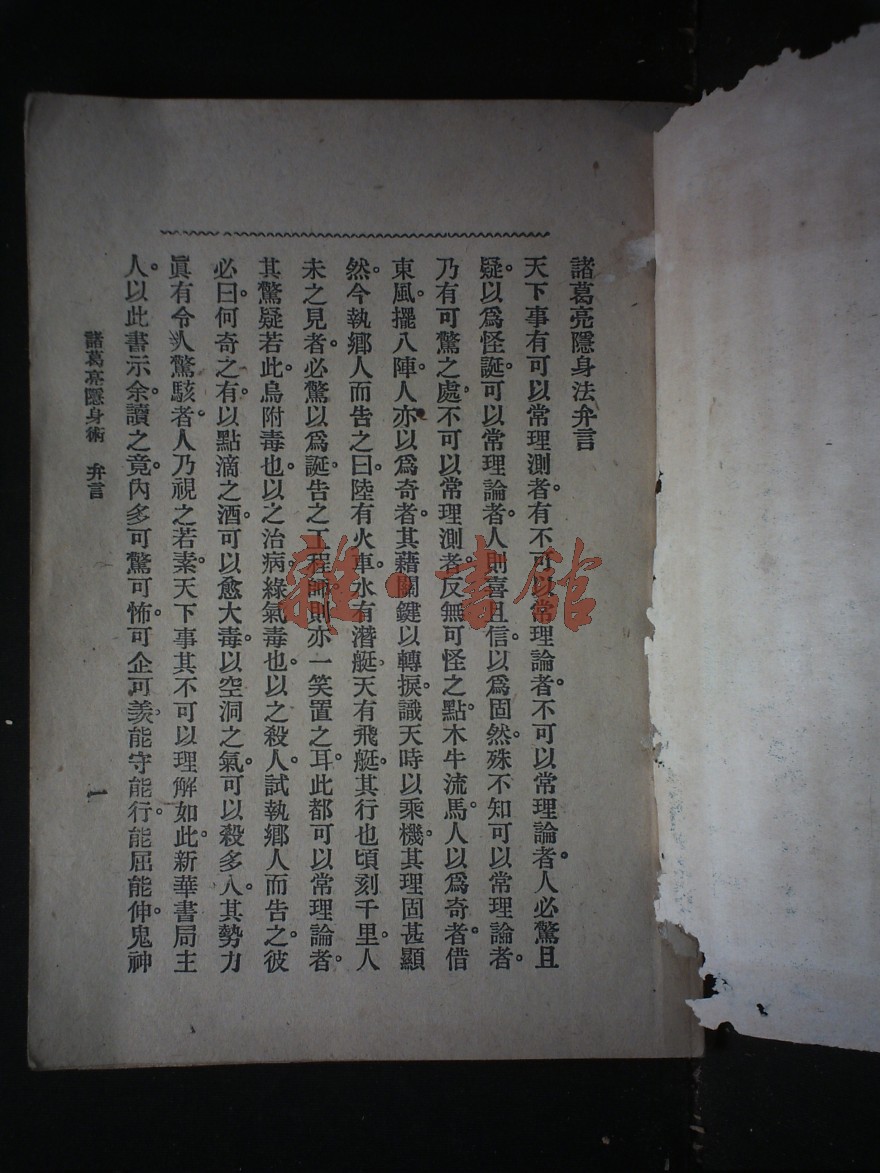 諸葛亮隱身法弁言
天下事有可以常理測者。有不可以常理論者。不可以常理論者。人必驚且
疑。以爲怪誕。可以常理論者。人則喜且信。以爲固然。殊不知可以常理論者。
乃有可驚之處。不可以常理測者。反無可怪之點。木牛流馬。人以爲奇者。借
東風。擺八陣。人亦以爲奇者。其藉關鍵以轉捩。識天時以乘機。其理固甚顯
然。今執鄉人而告之曰。陸有火車。水有潛艇。天有飛艇。其行也頃刻千里。人
未之見者。必驚以爲誕。告之工程師。則亦一笑置之耳。此都可以常理論者。
其驚疑若此。烏附毒也。以之治病。綠氣毒也。以之殺人。試執鄉人而告之。彼
必曰。何奇之有。以點滴之酒。可以愈大毒。以空洞之氣。可以殺多人。其勢力
眞有令人驚駭者。人乃視之若素。天下事其不可以理解如此。新華書局主
人。以此書示余。讀之竟。內多可驚可怖。可企可羨。能守能行。能屈能伸。鬼神
諸葛亮隱身術 弁言
一
雜·書館